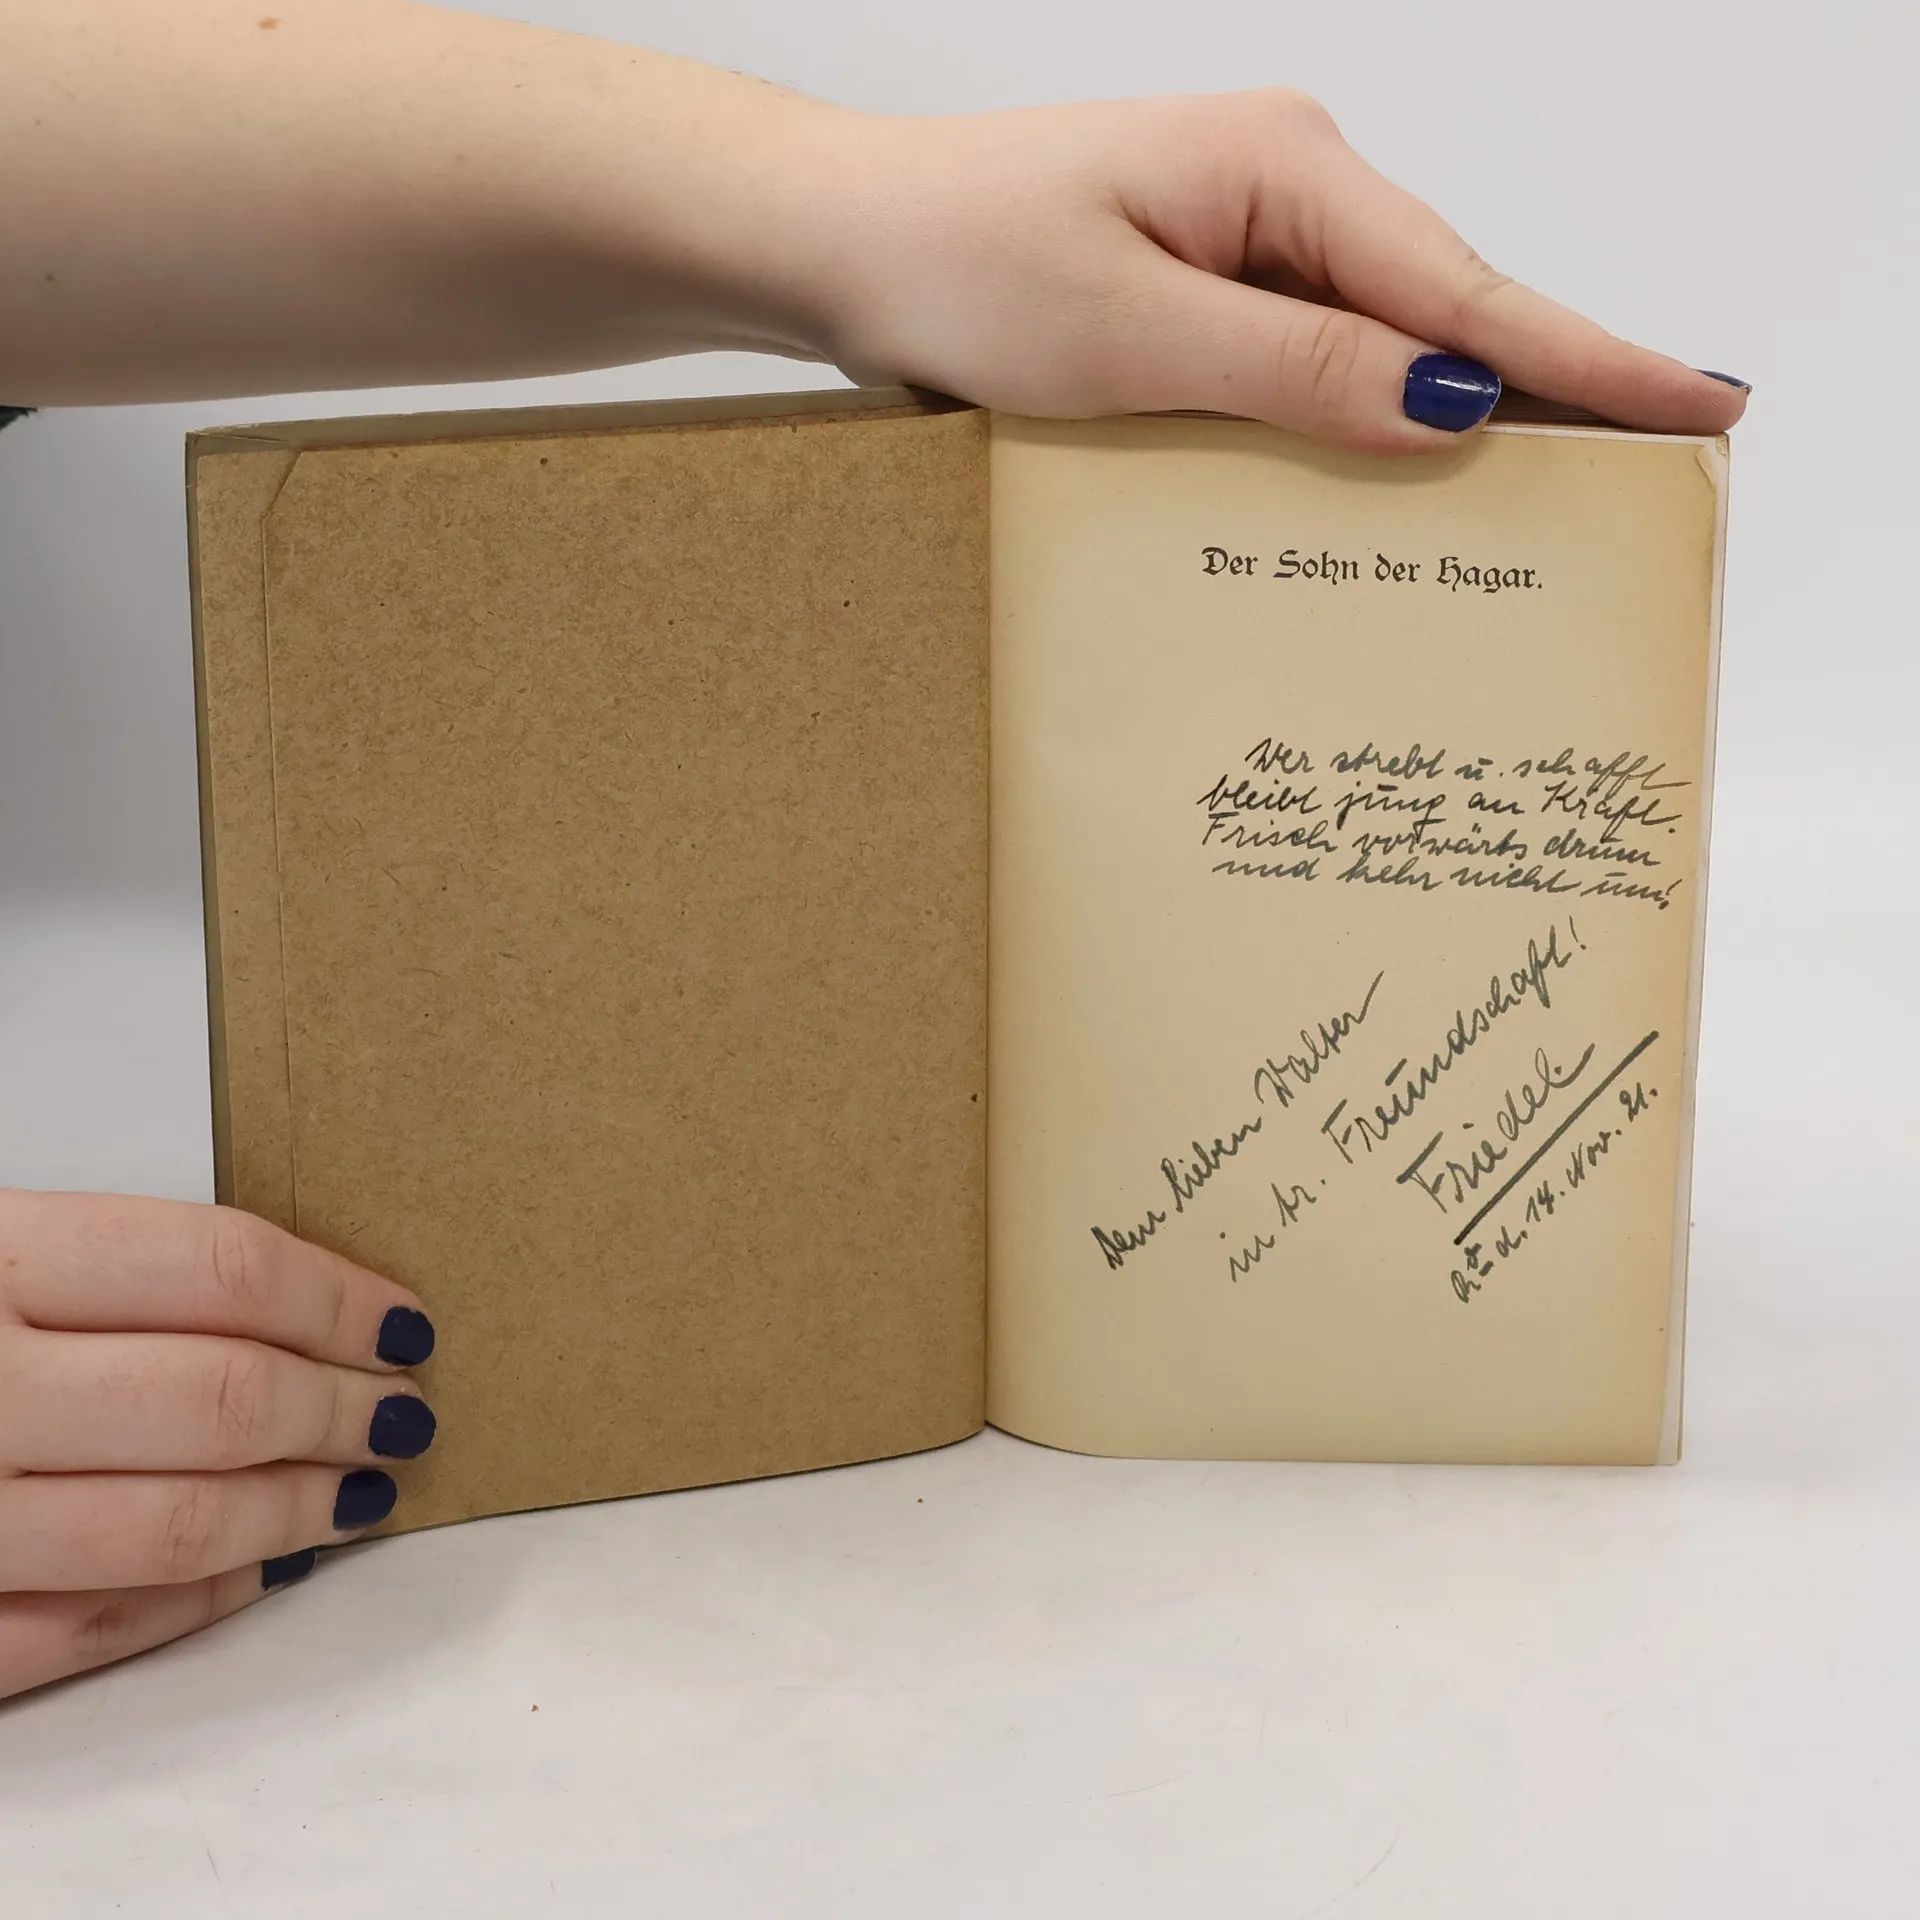 Der Sohn der Hagar.
Wer strebt u. schafft
bleibt jung an Kraft.
Frisch vorwärts drum
und kehr nicht um!
Dem lieben Walter
in tr. Freundschaft!
Friedel.
d. 14. Nov. 21.